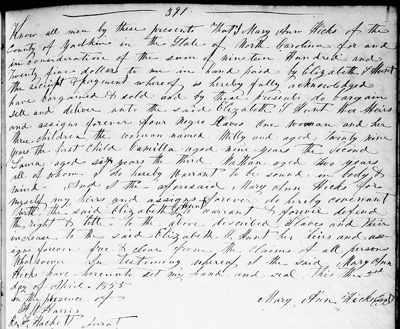 391.
Know all men by these presents That I Mary Ann Hicks of the
County of Yadkin in the State of North Carolina for and
in consideration of the sum of nineteen Hundred and
Twenty five dollars to me in hand paid by Elizabeth T Hunt
the receipt & payment whereof is hereby fully acknowledged
have bargained & sold and by these presents do bargain
sell and deliver unto the said Elizabeth T Hunt her Heirs
and assigns forever Four Negro Slaves One woman and her
three children the woman named Milly and aged Twenty nine
years the first Child Camilla aged nine years the second
Laura aged six years the third Nathan aged two years
all of whom I do hereby Warrant to be sound in body &
mind. And I the aforesaid Mary Ann Hicks for
myself my heirs and assigns forever do hereby covenant
with the said Elizabeth T Hunt warrant & forever defend
the right & title to the above described Slaves and their
increase to the said Elizabeth T Hunt her heirs and as-
signs forever free & clear from the claims of all persons
Whatsoever In testimony whereof I the said Mary Ann
Hicks have hereunto set my hand and seal this the
day of April 1855
In the presence of
Mary Ann Hicks (seal)
Harris
Hackett Jurat